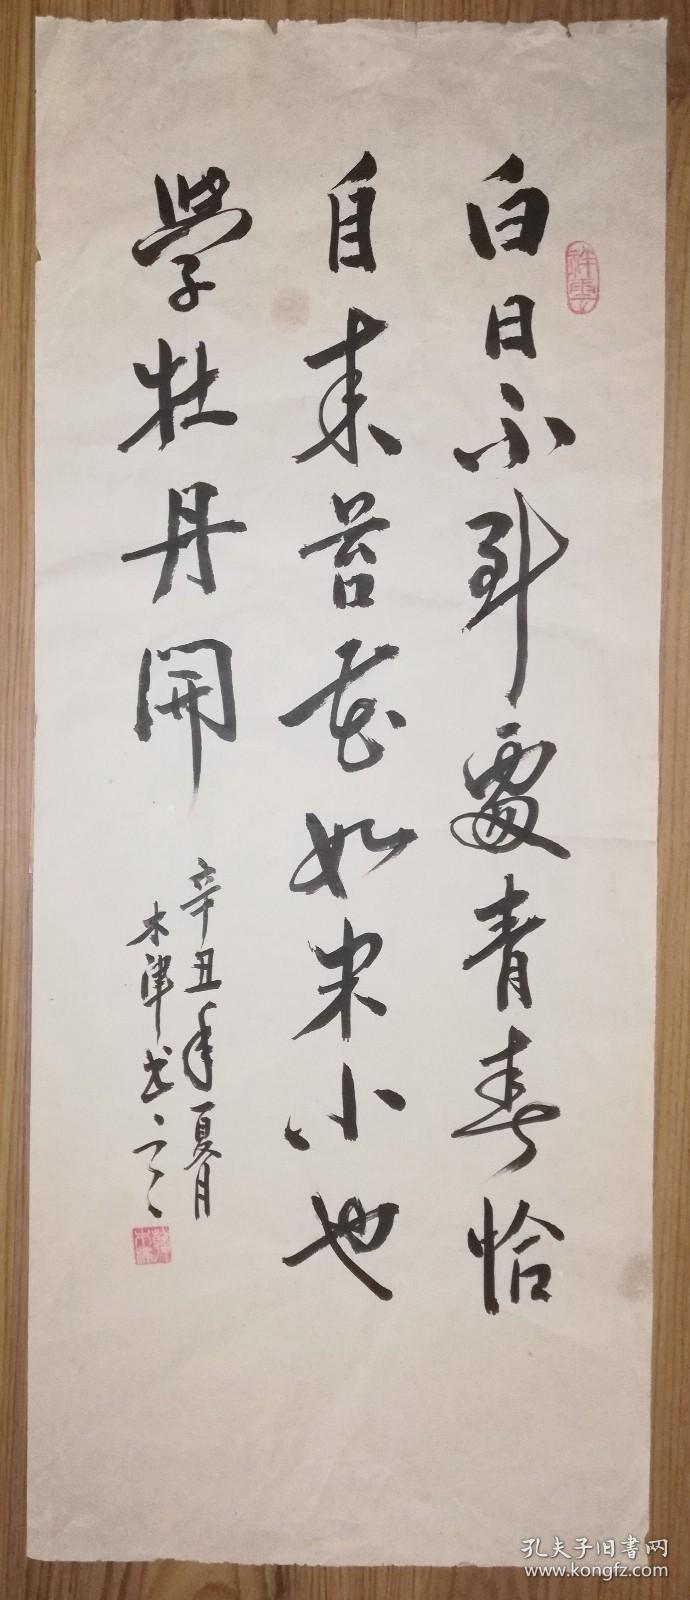 白日不到處青春恰
自来苔花如米小也
學牡丹開
辛丑年夏月
木津书之
祥雲
孔夫子旧書网
www.kongfz.com